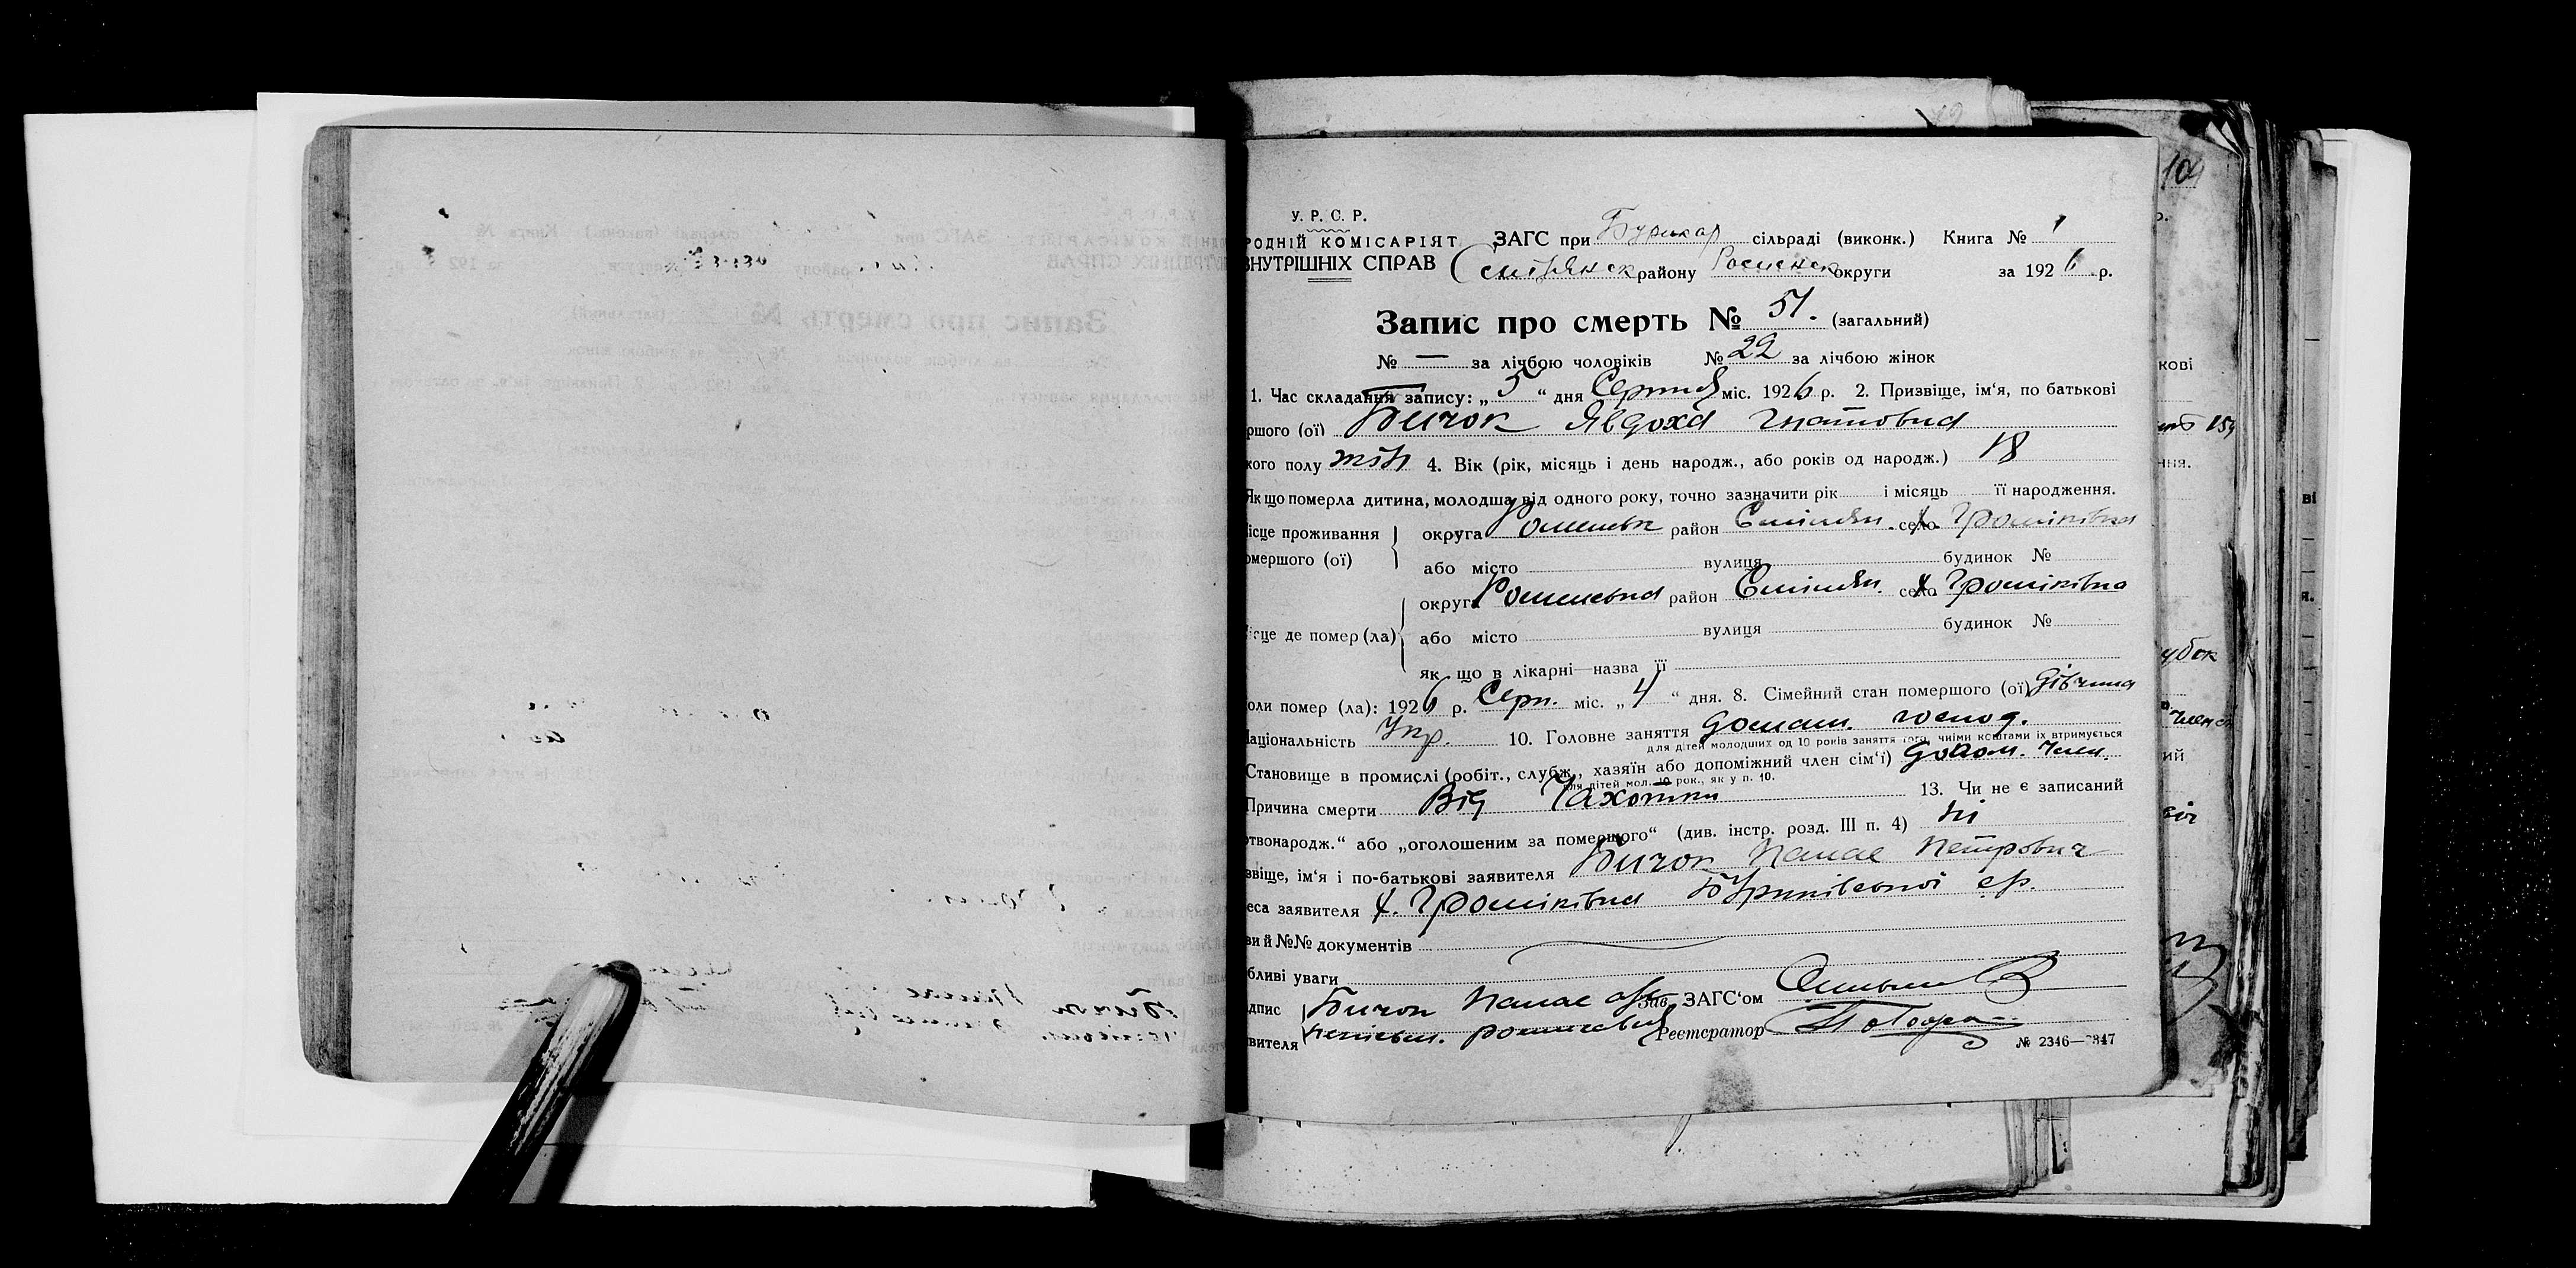 У. Р. С. Р.
РОДНІЙ КОМІСАРІЯТ ЗАГС при сільраді (виконк.) Книга № 1
ВНУТРІШНІХ СПРАВ району округи за 1926 р.
Запис про смерть № 51. (загальний)
№ — за лічбою чоловіків № 22 за лічбою жінок
1. Час складання запису: „ 5 “ дня Серпня міс. 1926 р. 2. Призвіще, ім‘я, по батькові
ршого (ої) Бичок Явдоха Гнатовна
кого полу жін 4. Вік (рік, місяць і день народж., або років од народж.) 18
Якщо померла дитина, молодша від одного року, точно зазначити рік і місяць її народження.
ісце проживання округа Роменськ район Смілян. село х. Громіківка
омершого (ої) або місто вулиця будинок №
округа Роменьска район Смілян. село х Громіківка
ісце де помер (ла) або місто вулиця будинок №
як що в лікарні—назва її
оли помер (ла): 1926 р. Серп. міс. „ 4 “ дня. 8. Сімейний стан помершого (ої) дівчина
аціональність Укр. 10. Головне заняття домаш. госпо д.
для дітей молодших од 10 років заняття того, чиїми коштами їх втримується
Становище в промислі (робіт., служб., хазяїн або допоміжний член сім‘ї) допом. член.
для дітей мол. 10 рок., як у п. 10.
Причина смерти Від Чахотки 13. Чи не є записаний
твонародж.“ або „оголошеним за помершого“ (див. інстр. розд. III п. 4) Ні
звіще, ім‘я і по-батькові заявителя Бичок Панас Петрович
еса заявителя х. Громіківка с/р.
ви й №№ документів
бливі уваги
дпис Бичок Панас Зав. ЗАГС‘ом
вителя Реєстратор
№ 2346—2347
104
кові
159
ння.
ві
я.
убок
ий